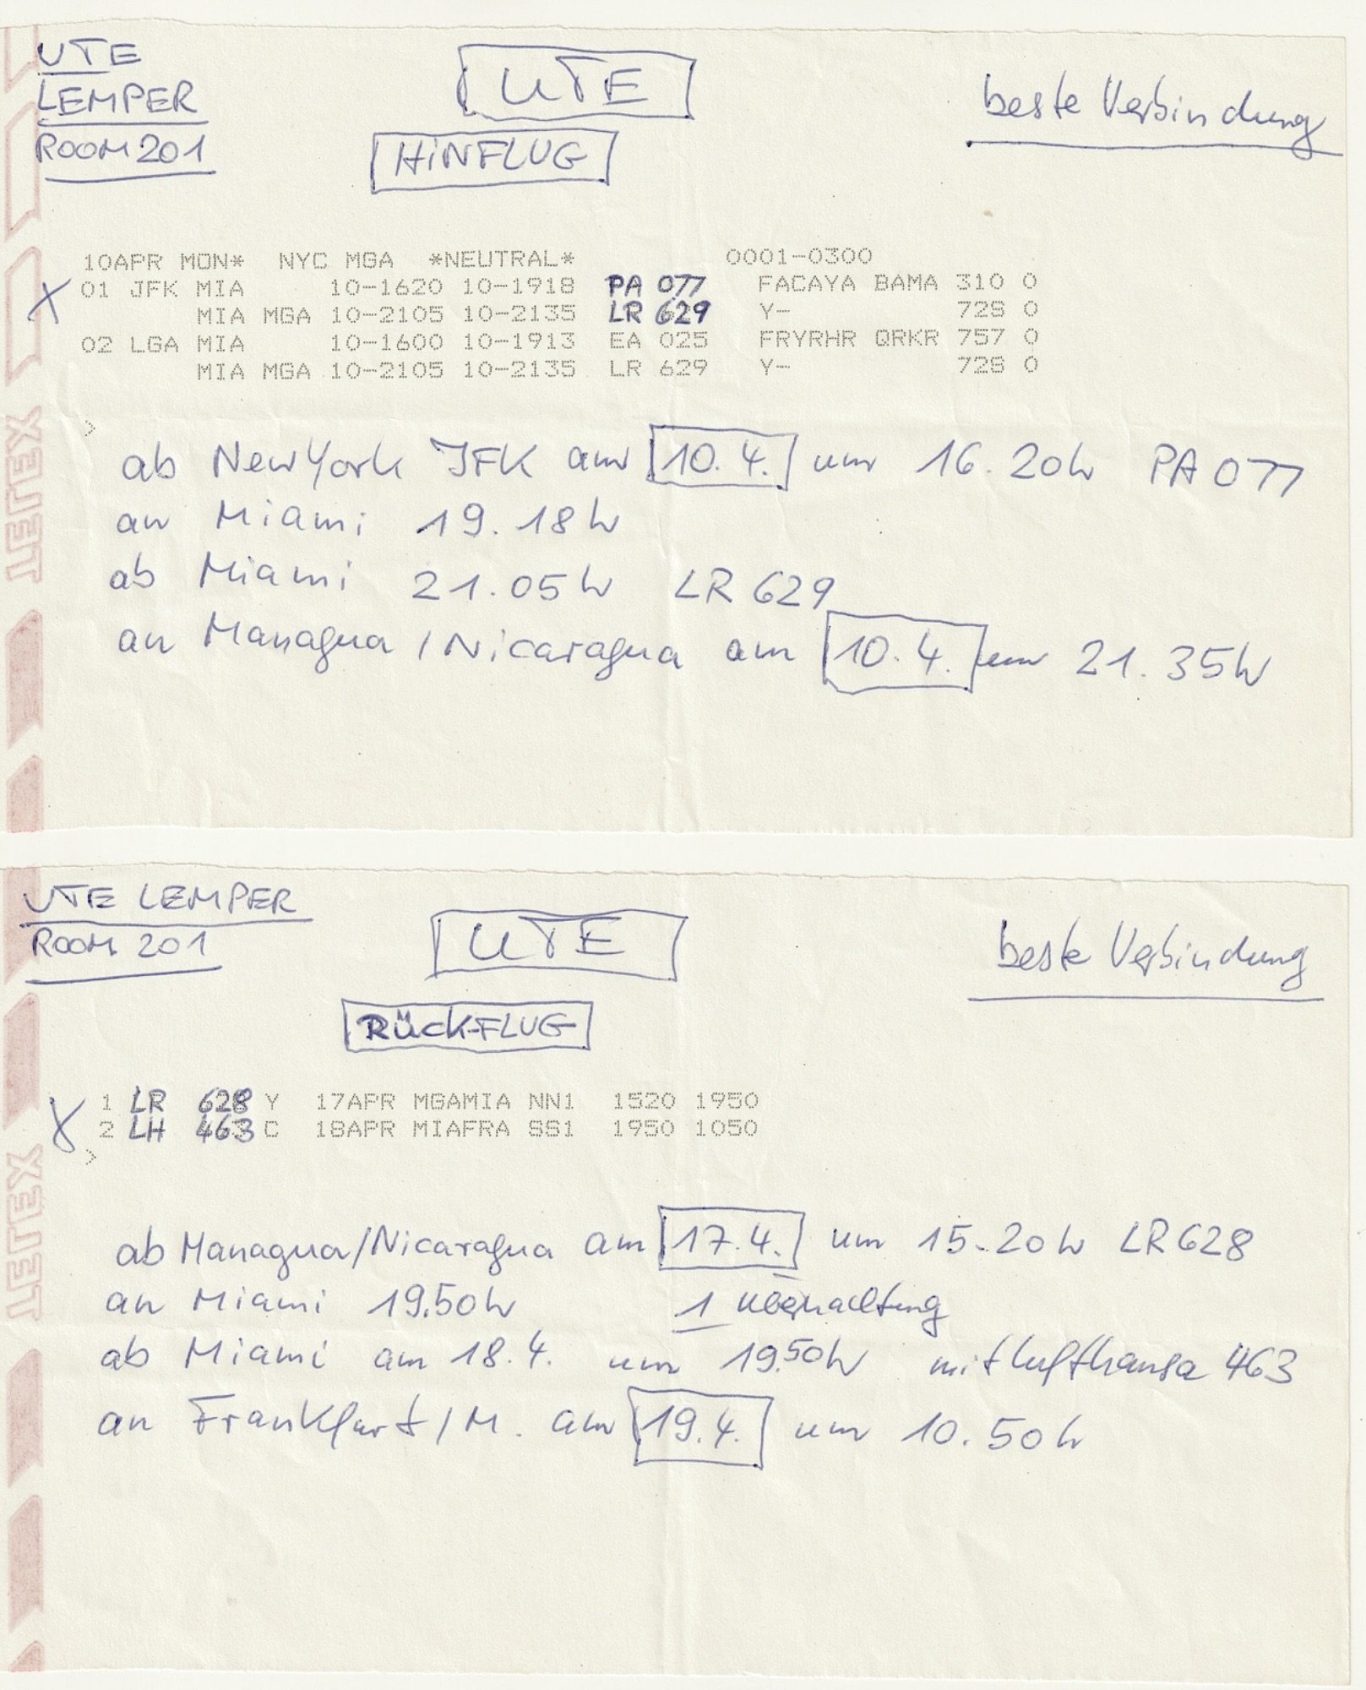 UTE
LEMPER
ROOM 201
UTE
HINFLUG
beste Verbindung
10APR MON*  NYC MGA  *NEUTRAL*  0001-0300
X 01 JFK MIA  10-1620 10-1918  PA 077  FACAYA BAMA 310 0
MIA MGA 10-2105 10-2135  LR 629  Y-  728 0
02 LGA MIA  10-1600 10-1913  EA 025  FRYRHR QRKR 757 0
MIA MGA 10-2105 10-2135  LR 629  Y-  728 0
>
ab New York JFK am 10.4. um 16.20h PA 077
an Miami 19.18h
ab Miami 21.05h LR 629
an Managua/Nicaragua am 10.4. um 21.35h
TELEX
UTE LEMPER
ROOM 201
UTE
RÜCK-FLUG
beste Verbindung
X 1 LR 628 Y  17APR MGAMIA NN1  1520 1950
2 LH 463 C  18APR MIAFRA SS1  1950 1050
>
ab Managua/Nicaragua am 17.4. um 15.20h LR 628
an Miami 19.50h 1 Übernachtung
ab Miami am 18.4. um 19.50h mit Lufthansa 463
an Frankfurt/M. am 19.4. um 10.50h
TELEX